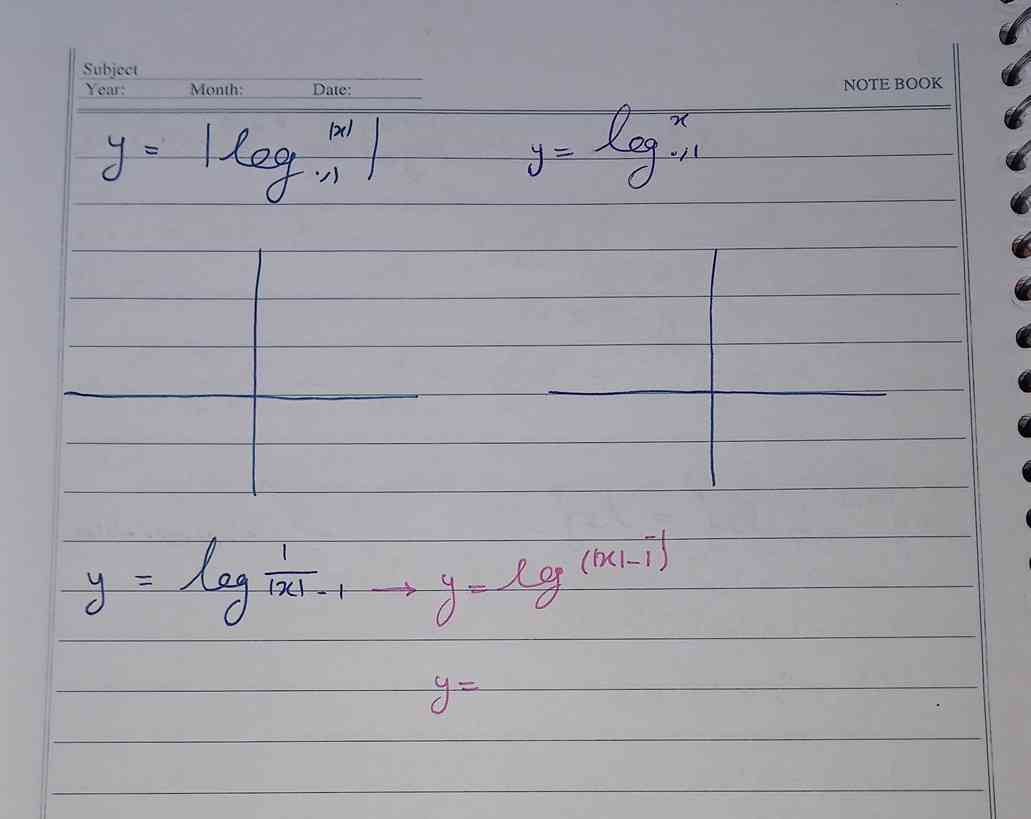 Subject
Year: Month: Date: NOTE BOOK
y = |log_{.,1}^{|x|}| y = log_{.,1}^{x}
y = log \frac{1}{|x|-1} → y = log^{(|x|-1)^{-1}}
y =